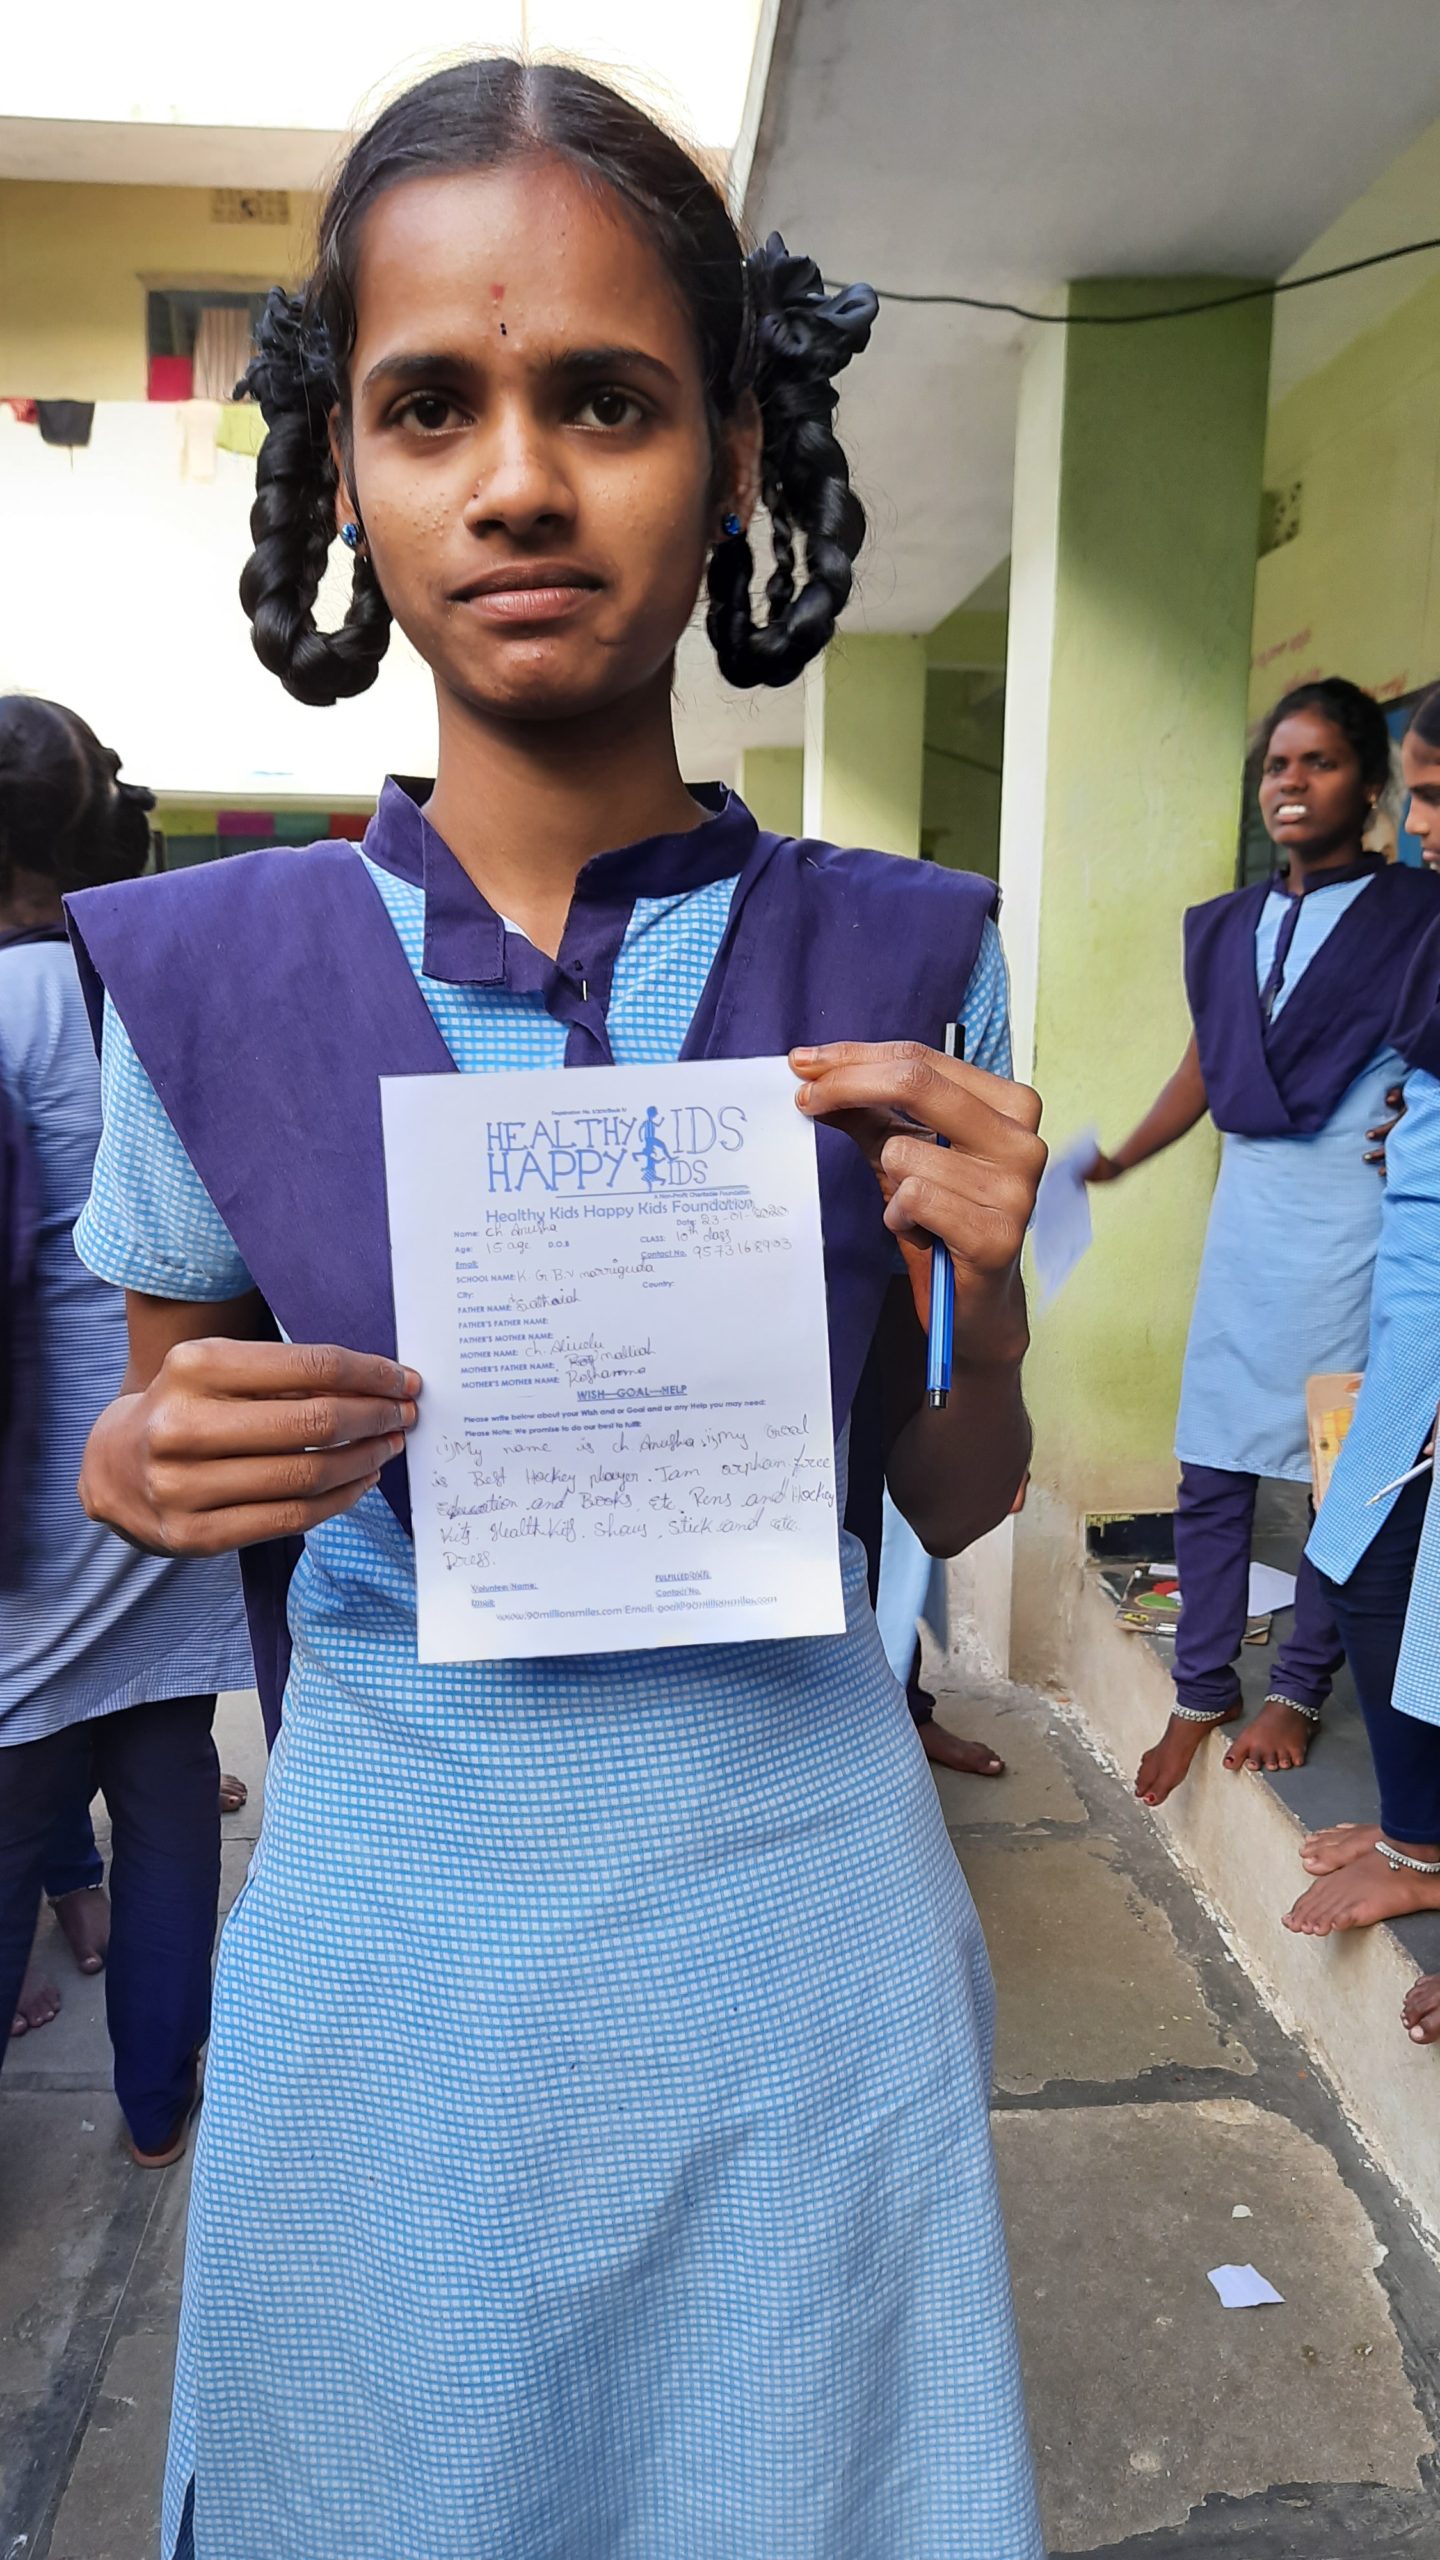 HEALTHY KIDS
HAPPY KIDS
A Non-Profit Charitable Foundation
Healthy Kids Happy Kids Foundation
Name: Ch. Anusha Date: 23-01-2020
Age: 15 age D.O.B CLASS: 10th class
Email: Contact No. 9573168903
SCHOOL NAME: K.G.B.V marriguda
City: Country:
FATHER NAME:
FATHER'S FATHER NAME:
FATHER'S MOTHER NAME:
MOTHER NAME: Ch.
MOTHER'S FATHER NAME: malliah
MOTHER'S MOTHER NAME: Posharama
WISH—GOAL—HELP
Please write below about your Wish and or Goal and or any Help you may need:
Please Note: We promise to do our best to fulfill:
(i) My name is ch. Anusha. ii) my Goal
is Best Hockey player. I am orphan. free
Education and Books, etc. Pens and Hockey
kits. Health kits. Shows, Stick and etc.
Dress.
Volunteer Name: FULFILLED DATE:
Email: Contact No.
www.90millionsmiles.com Email: goal@90millionsmiles.com